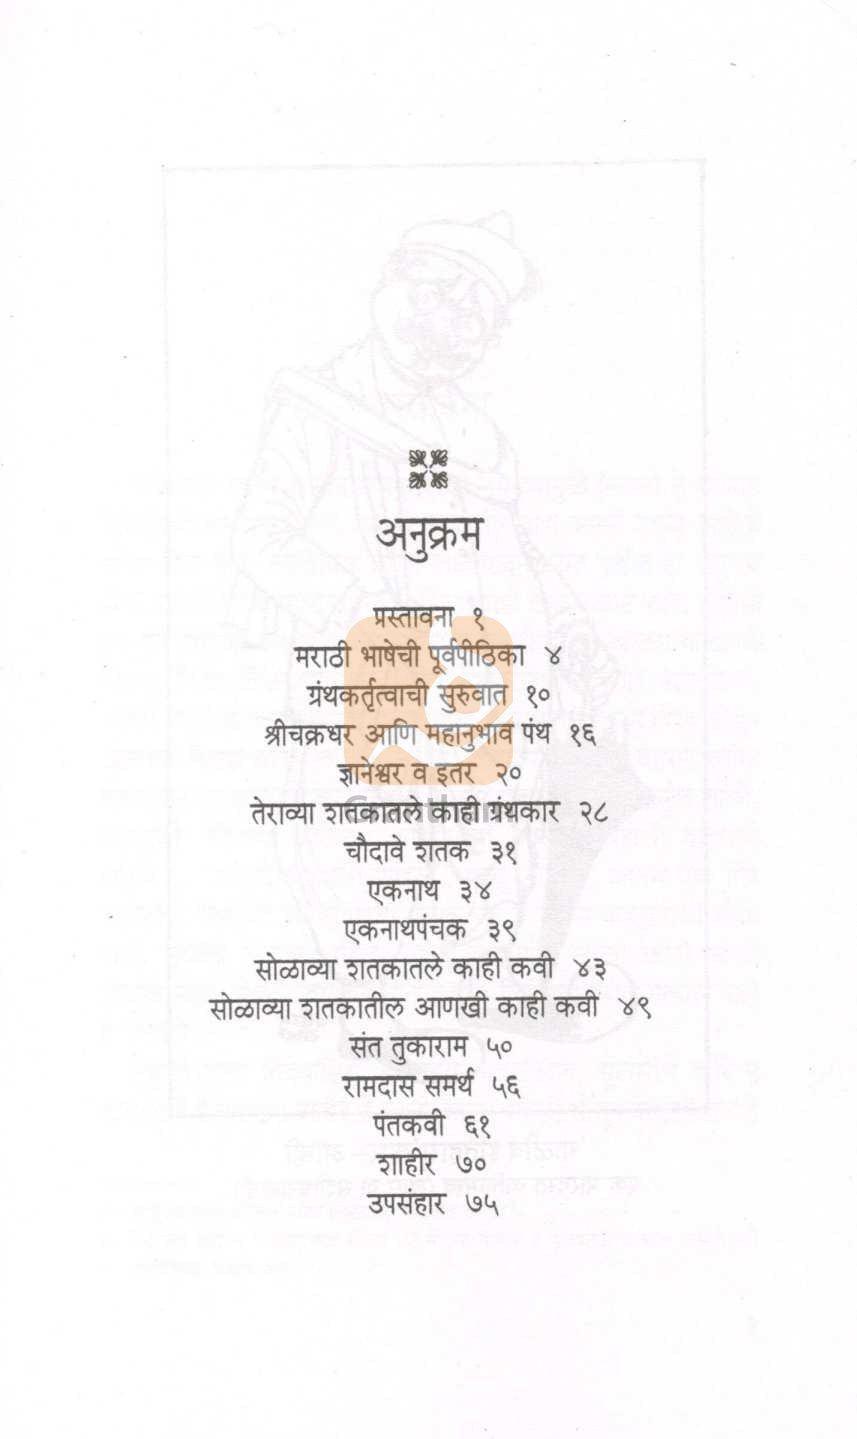 अनुक्रम
प्रस्तावना १
मराठी भाषेची पूर्वपीठिका ४
ग्रंथकर्तृत्वाची सुरुवात १०
श्रीचक्रधर आणि महानुभाव पंथ १६
ज्ञानेश्वर व इतर २०
तेराव्या शतकातले काही ग्रंथकार २८
चौदावे शतक ३१
एकनाथ ३४
एकनाथपंचक ३९
सोळाव्या शतकातले काही कवी ४३
सोळाव्या शतकातील आणखी काही कवी ४९
संत तुकाराम ५०
रामदास समर्थ ५६
पंतकवी ६१
शाहीर ७०
उपसंहार ७५